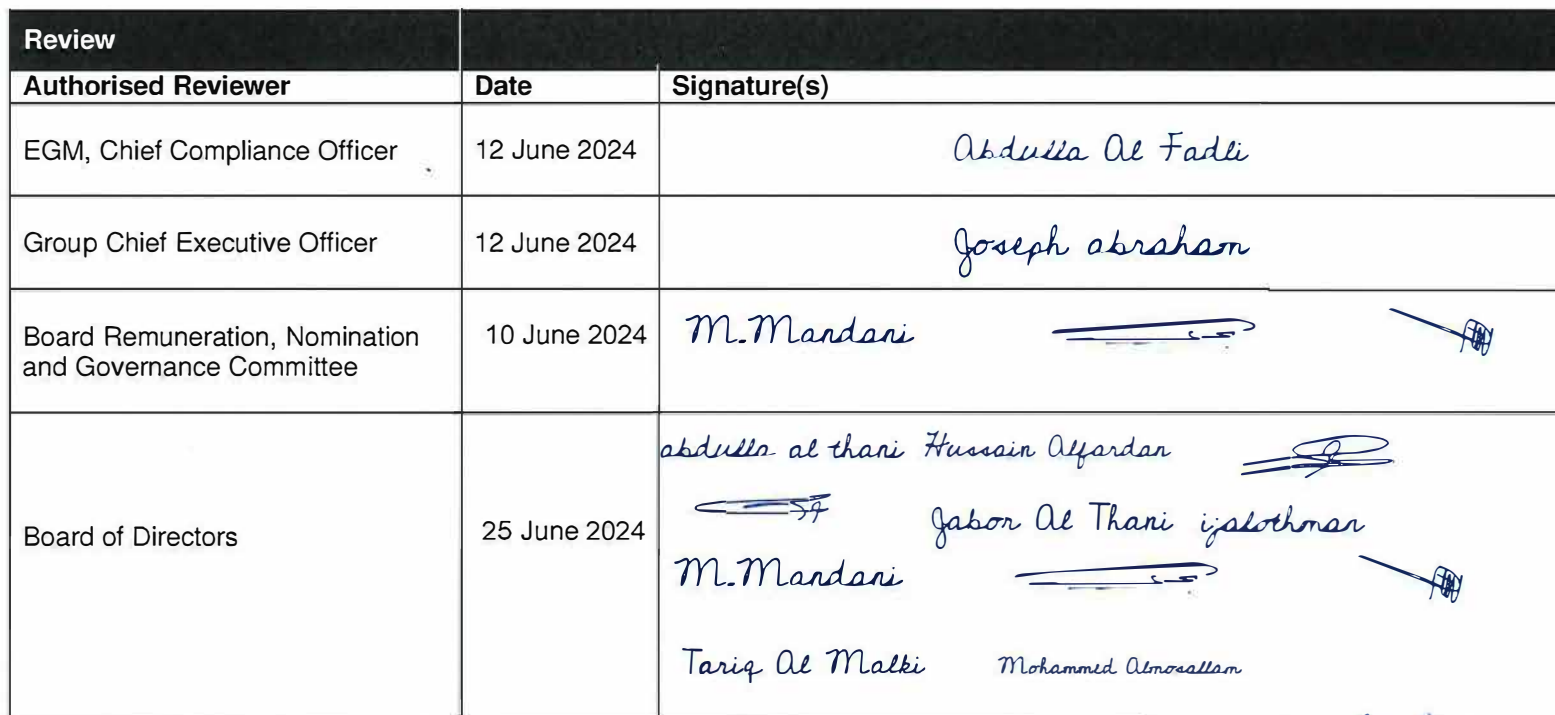 Review
Authorised Reviewer Date Signature(s)
EGM, Chief Compliance Officer 12 June 2024 Abdulla Al Fadli
Group Chief Executive Officer 12 June 2024 Joseph abraham
Board Remuneration, Nomination
and Governance Committee
10 June 2024 M.Mandani
Board of Directors
25 June 2024
abdulla al thani Hussain Alfardan
Jabor Al Thani ijalothman
M.Mandani
Tariq Al Malki Mohammed Almosallam